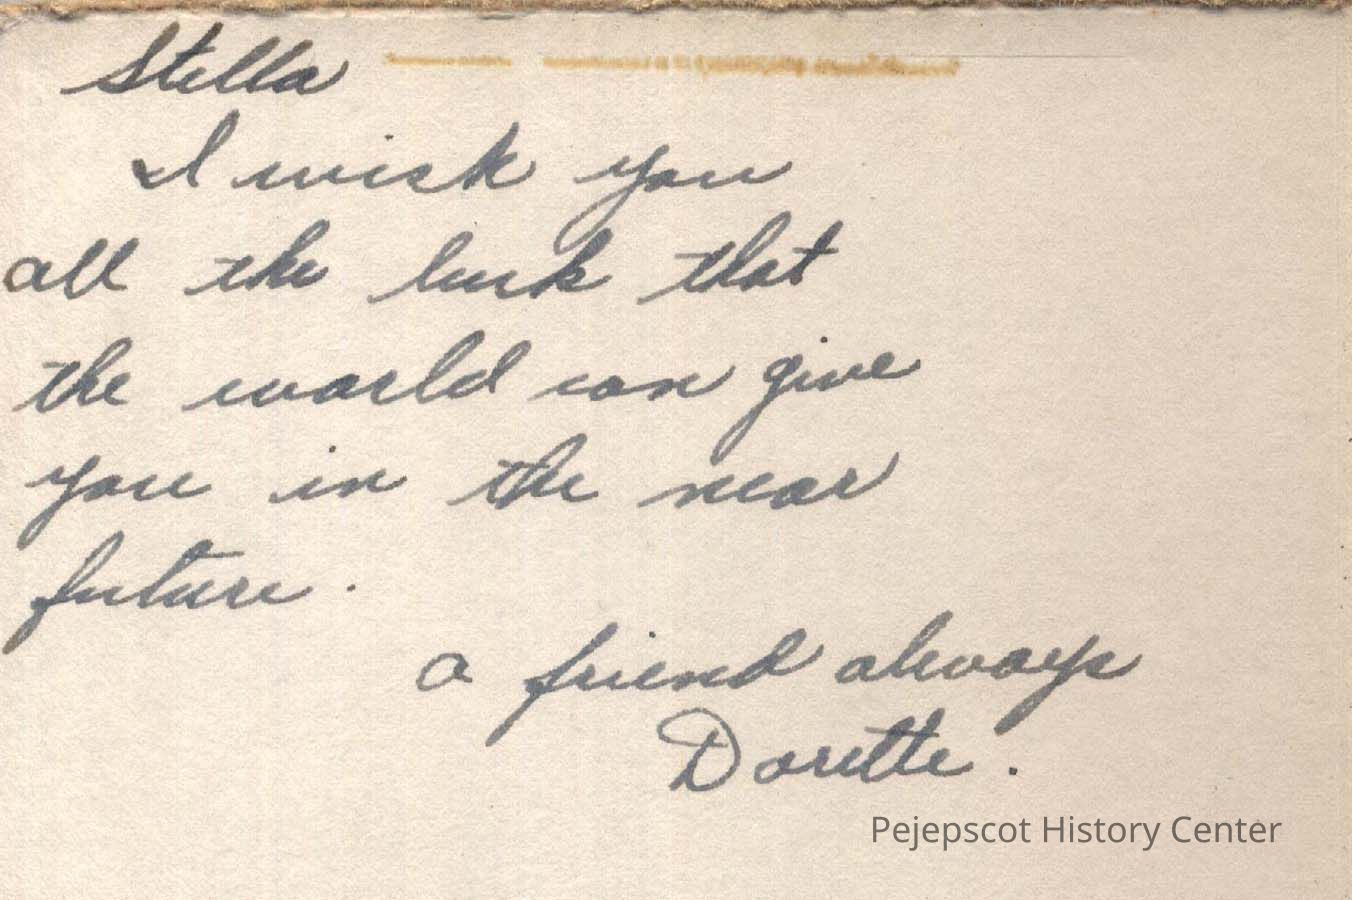 Stella
I wish you
all the luck that
the world can give
you in the near
future.
a friend always
Dorette.
Pejepscot History Center